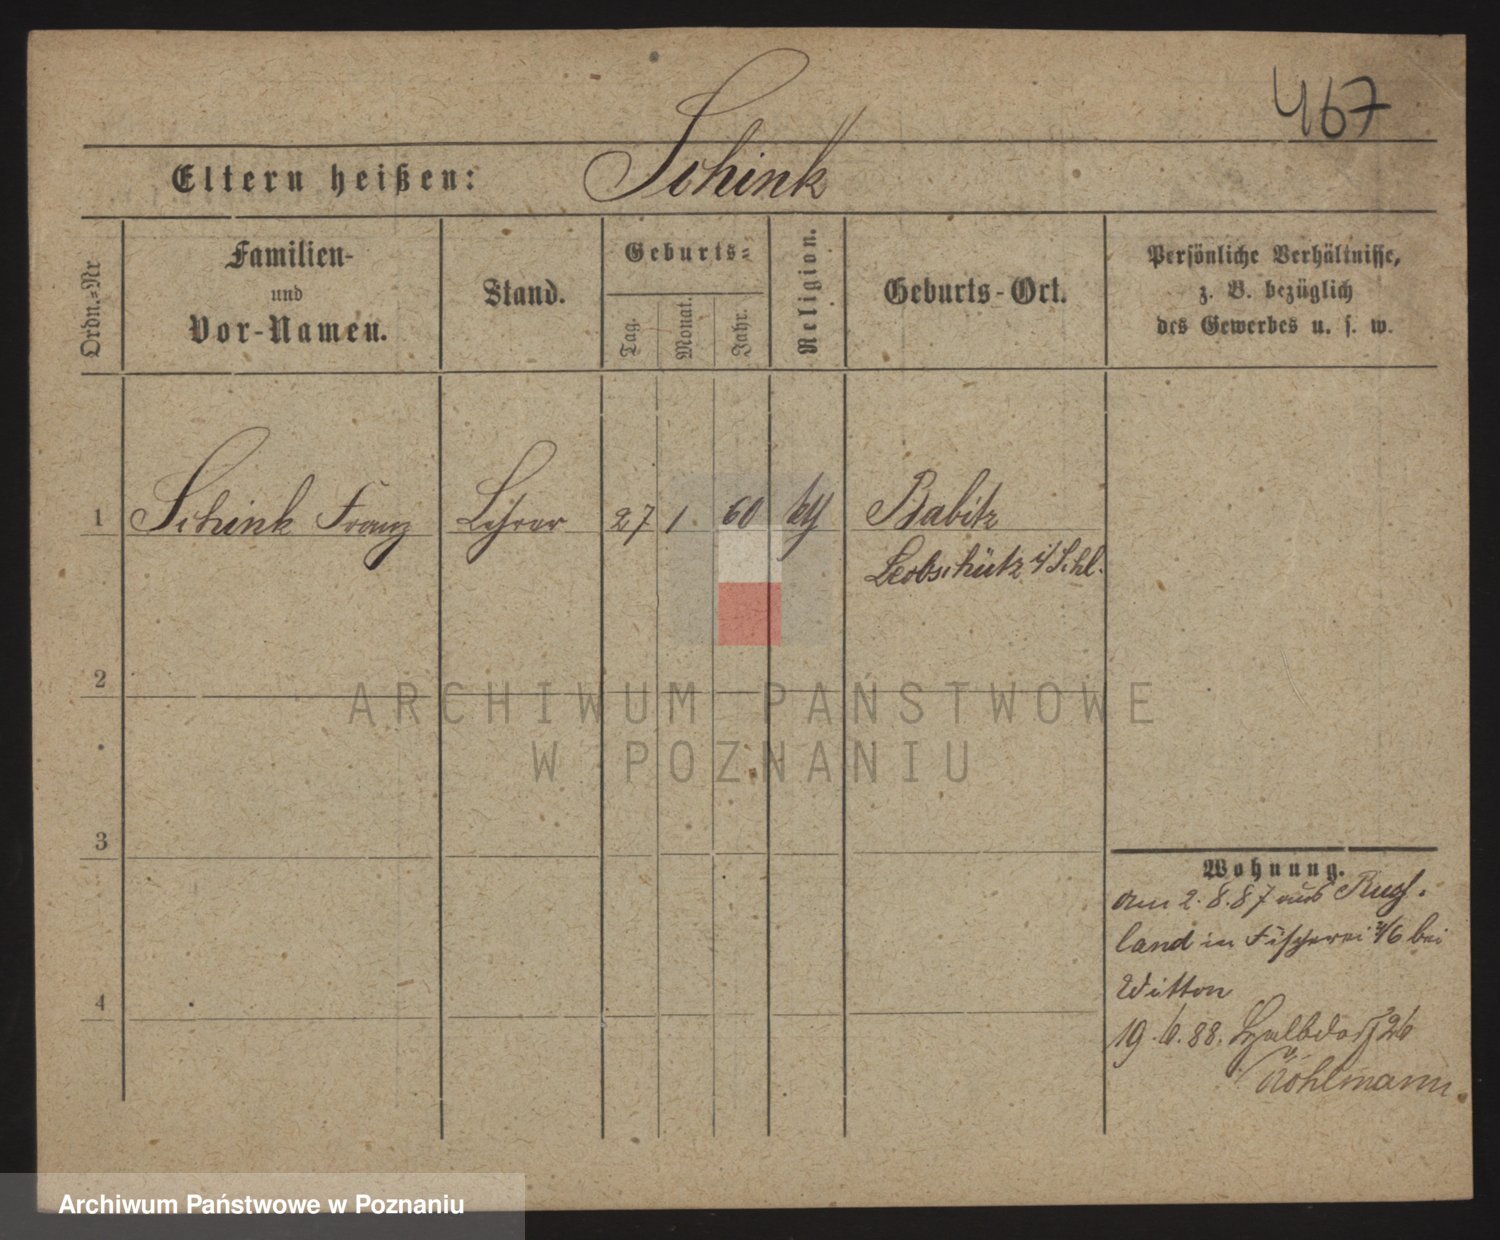 467
Eltern heißen: Schink
Ordn.=Nr
Familien-
und
Vor-Namen.
Stand.
Geburts=
Tag.
Monat.
Jahr.
Religion.
Geburts-Ort.
Persönliche Verhältnisse,
z. B. bezüglich
des Gewerbes u. s. w.
1 Schink Franz Lehrer 27 1 60 Babitz
Leobschütz i/Schl.
2
ARCHIWUM PAŃSTWOWE
W POZNANIU
3
Wohnung.
am 2.8.87 aus
land in Fischerei bei
Witton
4
19.6.88. Halbdorf 26
Archiwum Państwowe w Poznaniu